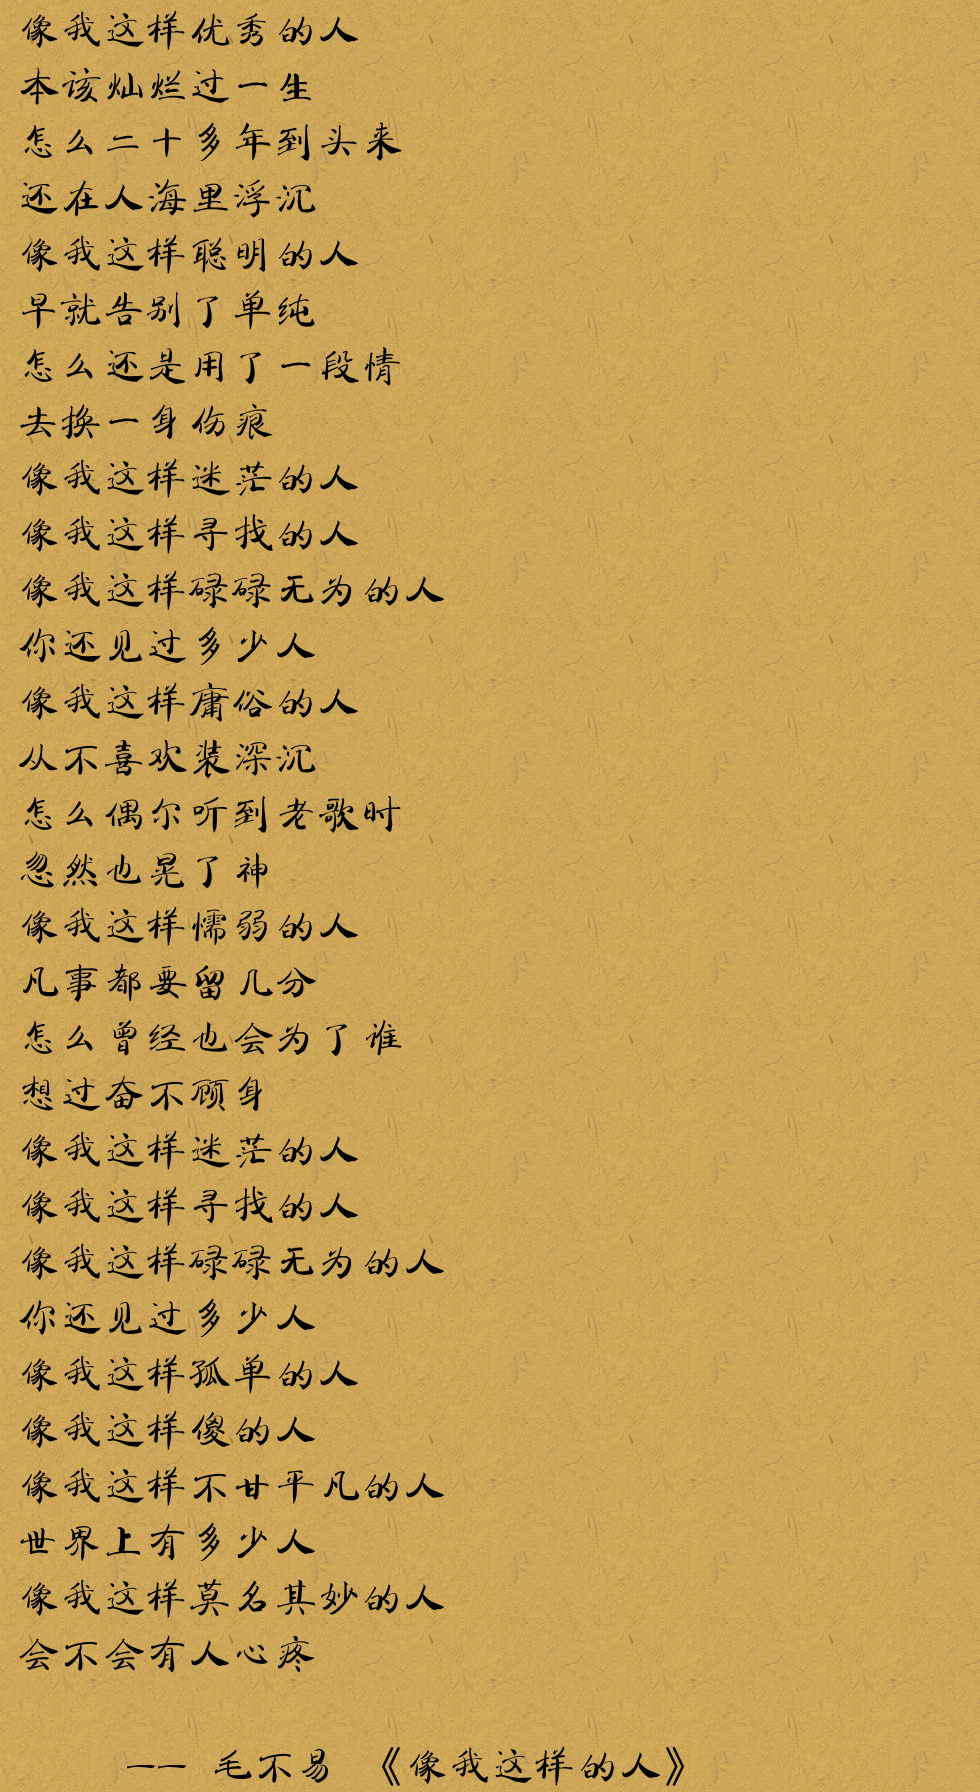 像我这样优秀的人
本该灿烂过一生
怎么二十多年到头来
还在人海里浮沉
像我这样聪明的人
早就告别了单纯
怎么还是用了一段情
去换一身伤痕
像我这样迷茫的人
像我这样寻找的人
像我这样碌碌无为的人
你还见过多少人
像我这样庸俗的人
从不喜欢装深沉
怎么偶尔听到老歌时
忽然也晃了神
像我这样懦弱的人
凡事都要留几分
怎么曾经也会为了谁
想过奋不顾身
像我这样迷茫的人
像我这样寻找的人
像我这样碌碌无为的人
你还见过多少人
像我这样孤单的人
像我这样傻的人
像我这样不甘平凡的人
世界上有多少人
像我这样莫名其妙的人
会不会有人心疼
—— 毛不易 《像我这样的人》